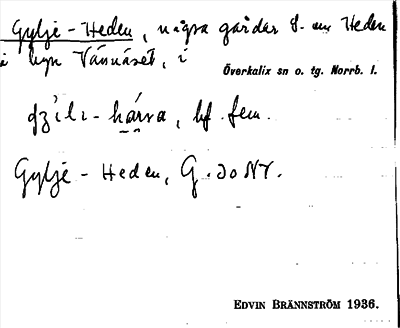 Gyljé - Heden, några gårdar S. om Heden
i byn Vännäset, i
Överkalix sn o. tg. Norrb. l.
bf. fem.
Gyljé - Heden, G.
EDVIN BRÄNNSTRÖM 1936.